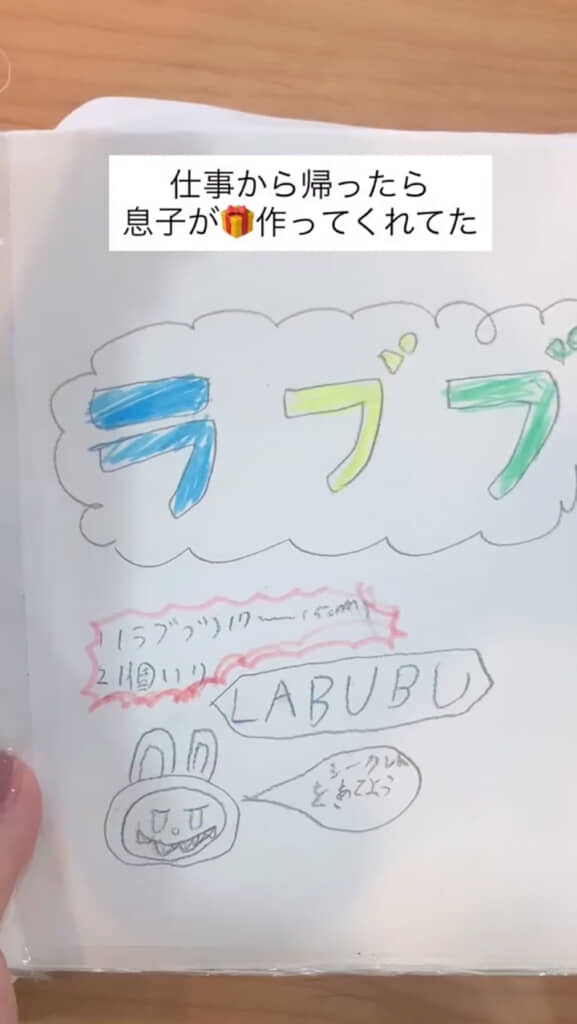 仕事から帰ったら
息子が🎁作ってくれてた
ラブブ
ラブブ
2 1個いり
LABUBU
シークレ
をあてよう